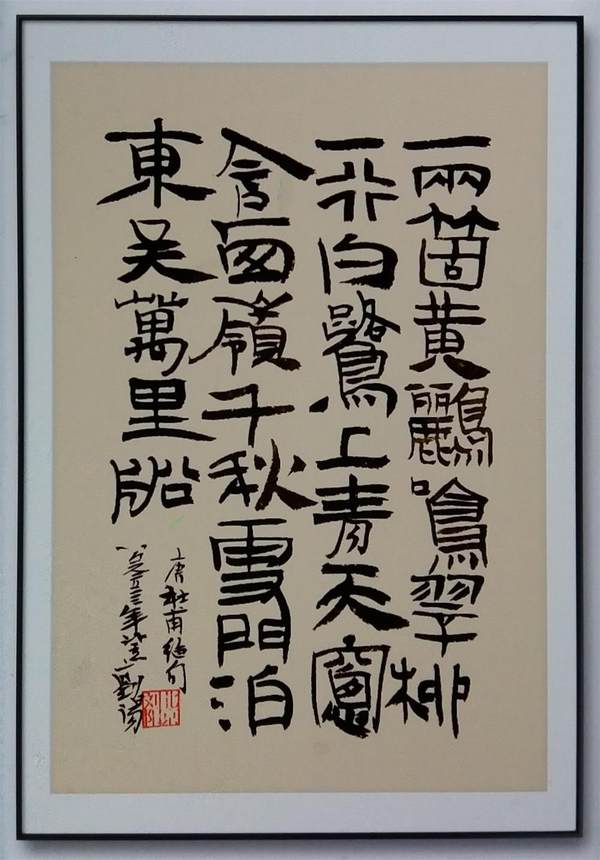 兩箇黄鸝鳴翠柳
一行白鷺上青天窻
含西嶺千秋雪門泊
東吴萬里船
唐杜甫絕句
年 劉